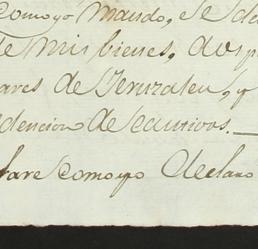 como yo mando, se da
de mis bienes, dos p
ares de Jeruzalen, y
dencion de Cautivos.
lare Como yo declaro